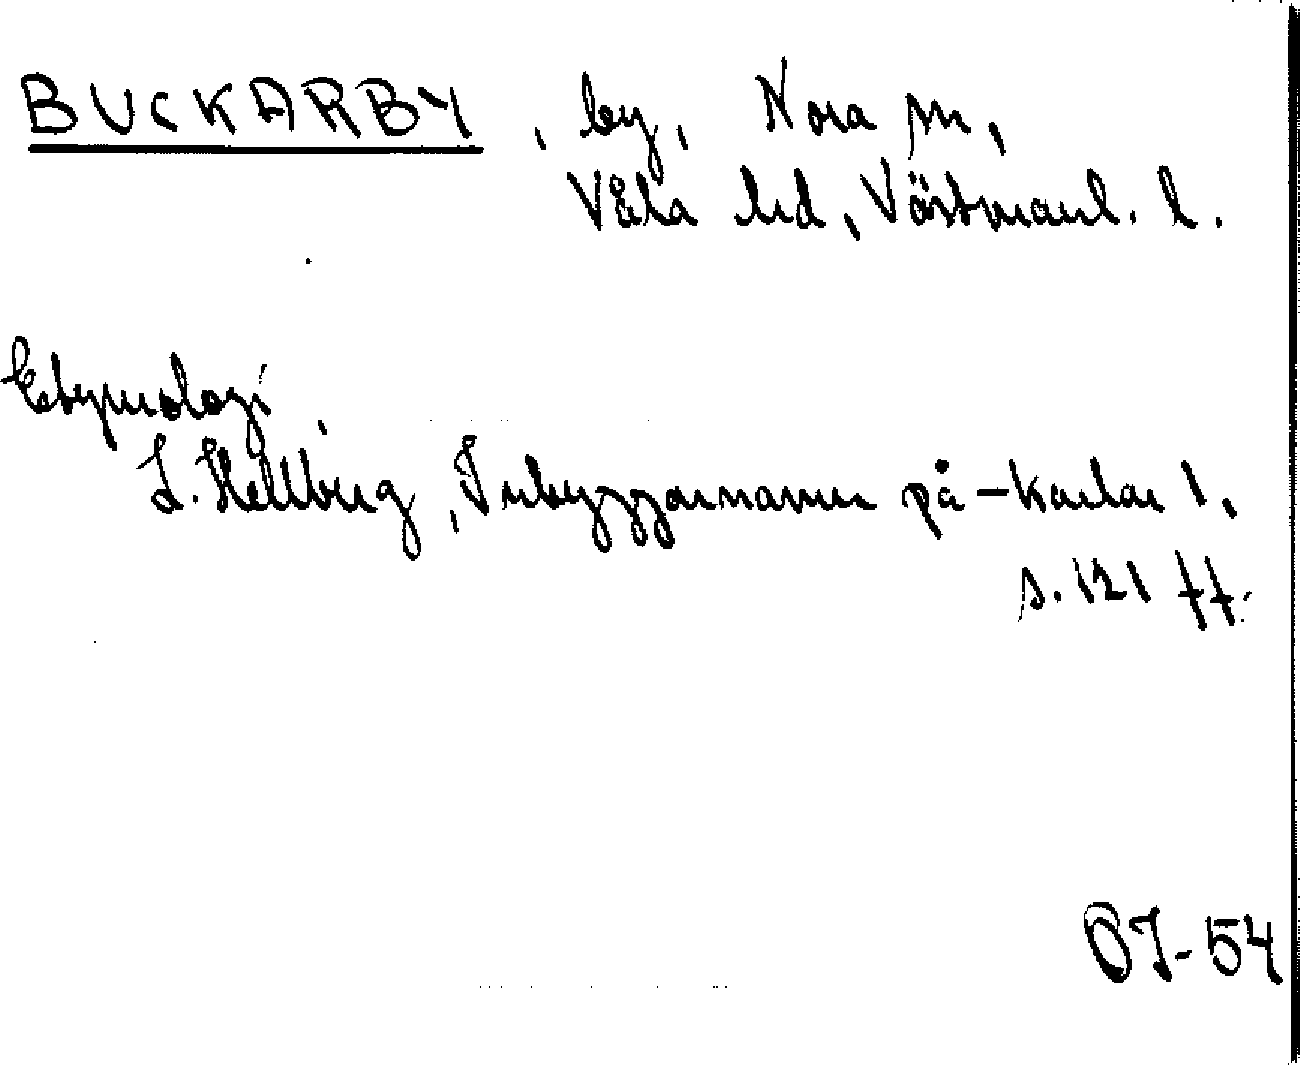 BUCKARBY, by, Nora sn,
Våla hd, Västmanl. l.
Etymologi
L. Hellberg, Inbyggarnamn på -karlar 1,
s. 121 ff.
OJ-54